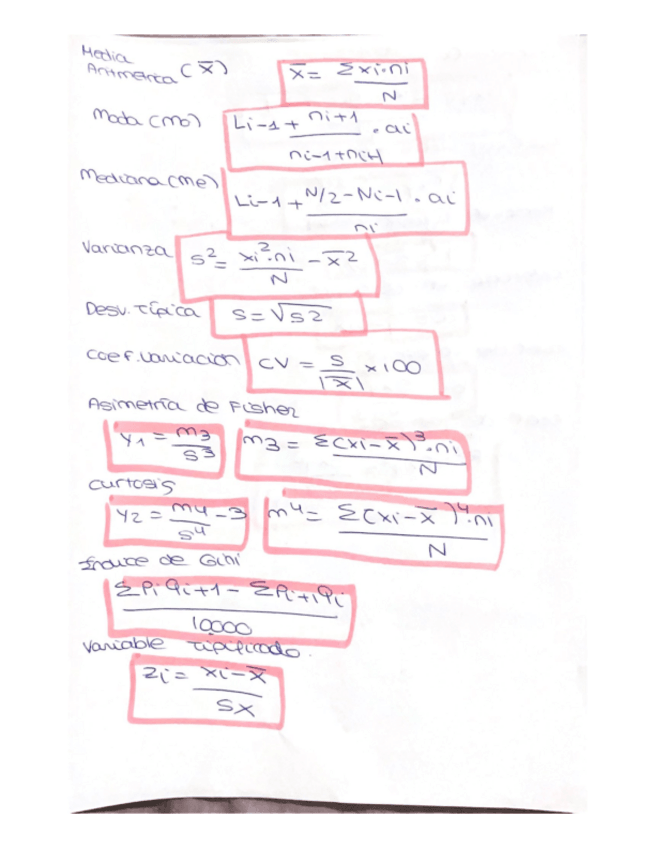 Media
Aritmetica (x̅) x̅ = Σxi·ni / N
Moda (mo) Li-1 + ni+1 / ni-1+ni+1 · ai
Mediana (me) Li-1 + N/2 - Ni-1 / ni · ai
Varianza s² = xi²·ni / N - x̅²
Desv. típica s = √s2
coef. variacion CV = s / |x̅| x 100
Asimetría de Fisher
γ1 = m3 / s3 m3 = Σ(xi - x̅)³·ni / N
curtosis
γ2 = m4 / s4 - 3 m4 = Σ(xi - x̅)⁴·ni / N
Índice de Gini
ΣPi Qi+1 - ΣPi+1Qi / 10000
Variable tipificado.
zi = xi - x̅ / sx